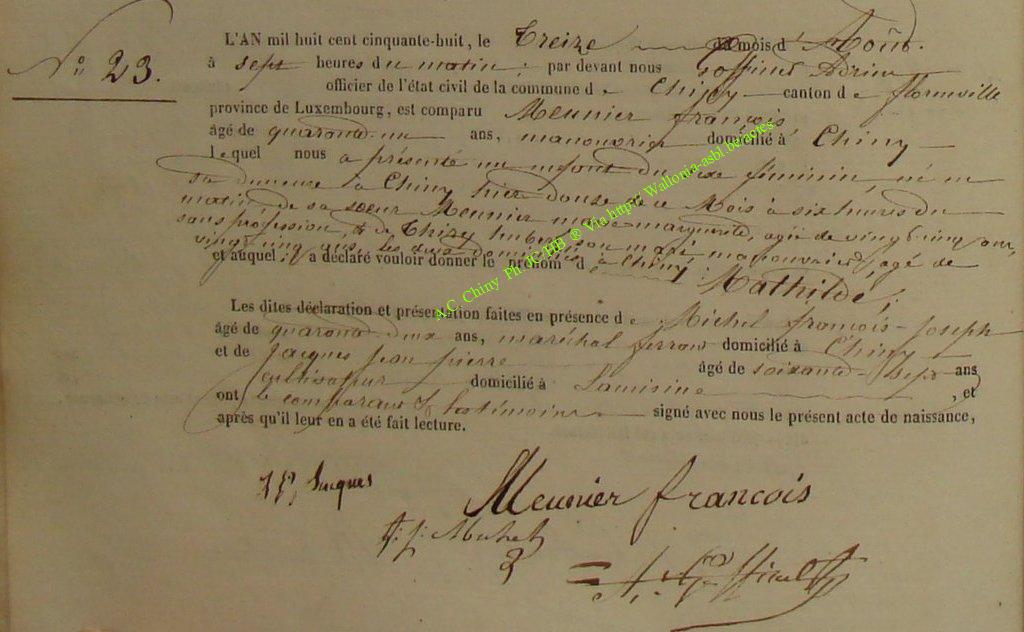 N° 23.
L'AN mil huit cent cinquante-huit, le Treize du mois d'Août.
à sept heures du matin; par devant nous Goffinet Adrien
officier de l'état civil de la commune de Chiny canton de florenville
province de Luxembourg, est comparu Meunier françois
âgé de quarante-un ans, manouvrier domicilié à Chiny
lequel nous a présenté un enfant du sexe féminin, né en
sa demeure à Chiny hier douze de ce Mois à six heures du
matin, de sa soeur Meunier marie marguerite, agée de vingt-cinq ans,
sans profession, & de Thiry hubert son mari manouvrier, agé de
vingt cinq ans, les deux domiciliés à Chiny
et auquel il a déclaré vouloir donner le prénom de Mathilde;
Les dites déclaration et présentation faites en présence de Michel françois-Joseph
âgé de quarante-deux ans, maréchal ferrant domicilié à Chiny
et de Jacques Jean pierre âgé de soixante-sept ans
cultivateur domicilié à , et
ont le comparant & les témoins signé avec nous le présent acte de naissance,
après qu'il leur en a été fait lecture.
JP, Jacques
Meunier francois
f: j: Michel
A. Goffinet
A.C. Chiny Ph JC HB ® Via http// Wallonia-asbl.be/actes